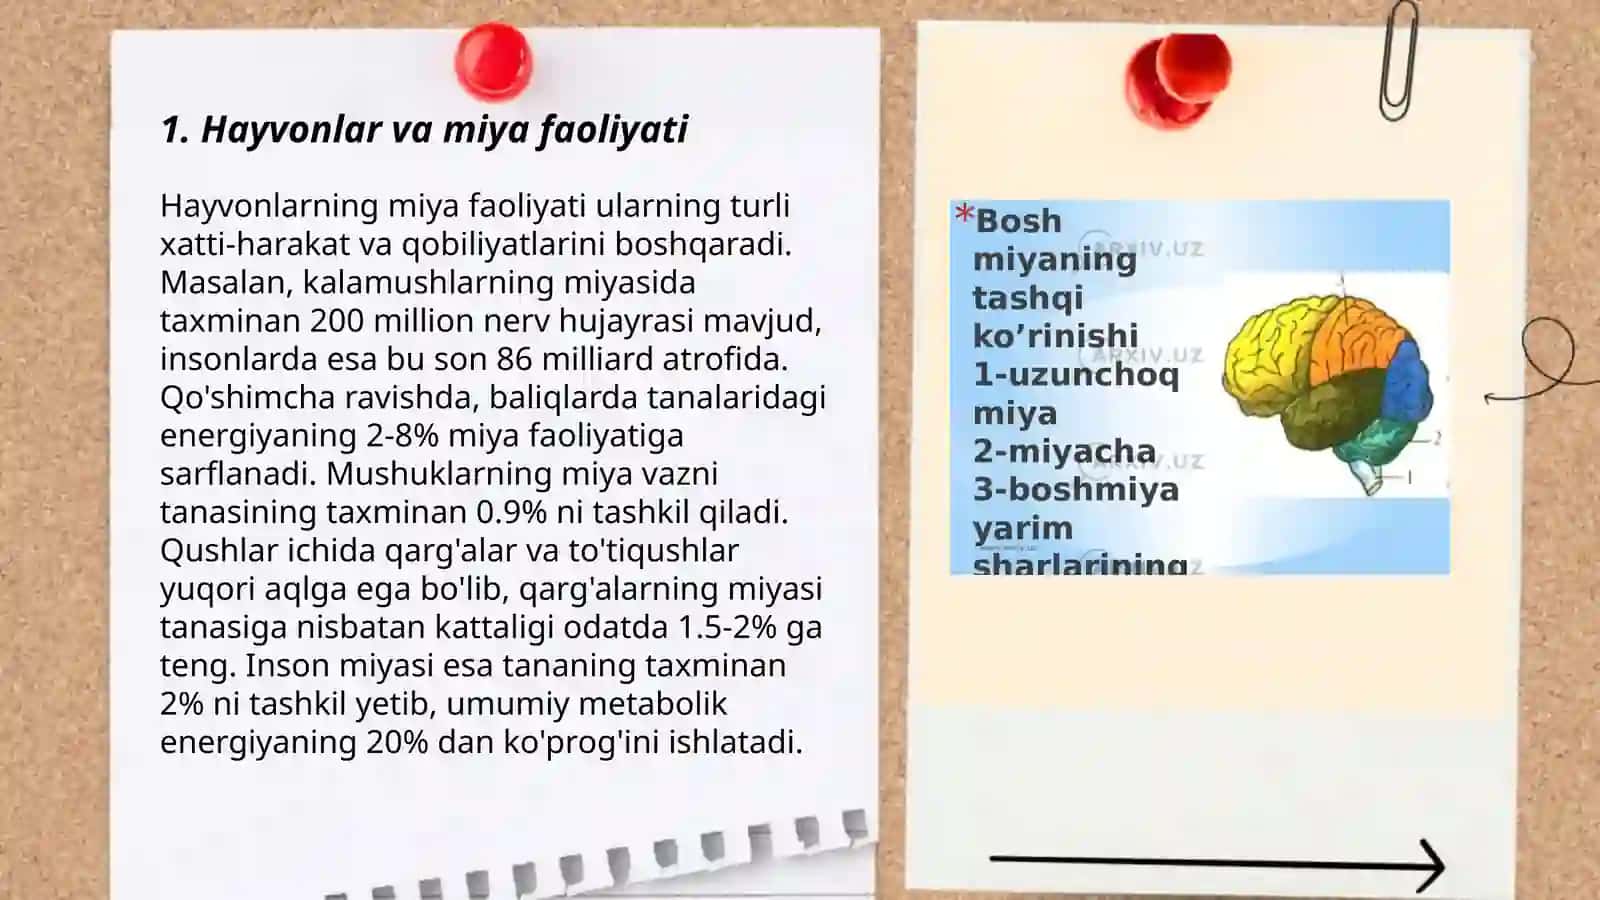 1. Hayvonlar va miya faoliyati
Hayvonlarning miya faoliyati ularning turli
xatti-harakat va qobiliyatlarini boshqaradi.
Masalan, kalamushlarning miyasida
taxminan 200 million nerv hujayrasi mavjud,
insonlarda esa bu son 86 milliard atrofida.
Qo'shimcha ravishda, baliqlarda tanalaridagi
energiyaning 2-8% miya faoliyatiga
sarflanadi. Mushuklarning miya vazni
tanasining taxminan 0.9% ni tashkil qiladi.
Qushlar ichida qarg'alar va to'tiqushlar
yuqori aqlga ega bo'lib, qarg'alarning miyasi
tanasiga nisbatan kattaligi odatda 1.5-2% ga
teng. Inson miyasi esa tananing taxminan
2% ni tashkil yetib, umumiy metabolik
energiyaning 20% dan ko'prog'ini ishlatadi.
*Bosh
miyaning
tashqi
ko’rinishi
1-uzunchoq
miya
2-miyacha
3-boshmiya
yarim
sharlarining
ARXIV.UZ
ARXIV.UZ
ARXIV.UZ
3
2
1